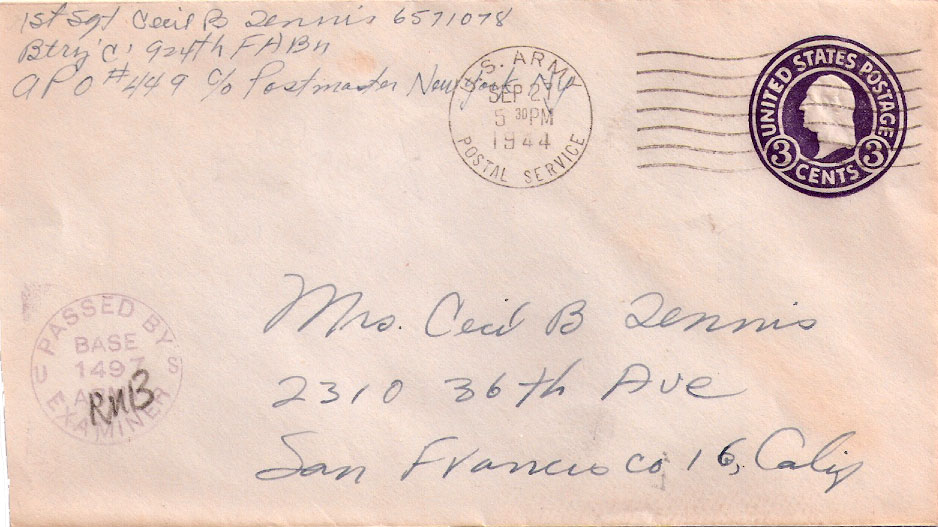 1st Sgt Cecil B Tennis 6571078
Btry "C" 924th FABn
APO #449 c/o Postmaster New York NY
U.S. ARMY
SEP 27
5 30 PM
1944
POSTAL SERVICE
UNITED STATES POSTAGE
3 CENTS 3
Mrs. Cecil B Tennis
2310 36th Ave
San Francisco 16, Calif
PASSED BY
BASE
1497
ARMY
U S
EXAMINER